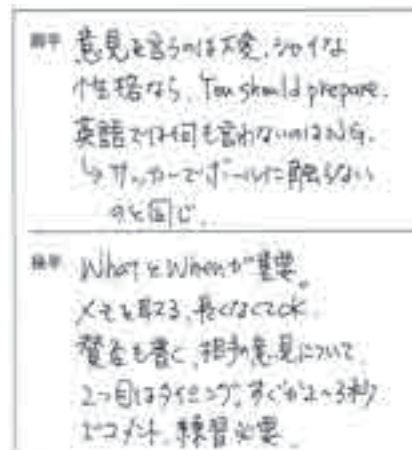 前半 意見を言うのは大変、シャイな
性格なら、You should prepare.
英語では何も言わないのはNG.
↳ サッカーでボールに触らない
のと同じ.
後半 WhatとWhenが重要。
メモを取る、長くなくてOK
賛否も書く、相手の意見について
2つ目はタイミング、すぐか2〜3秒
でコメント、練習必要